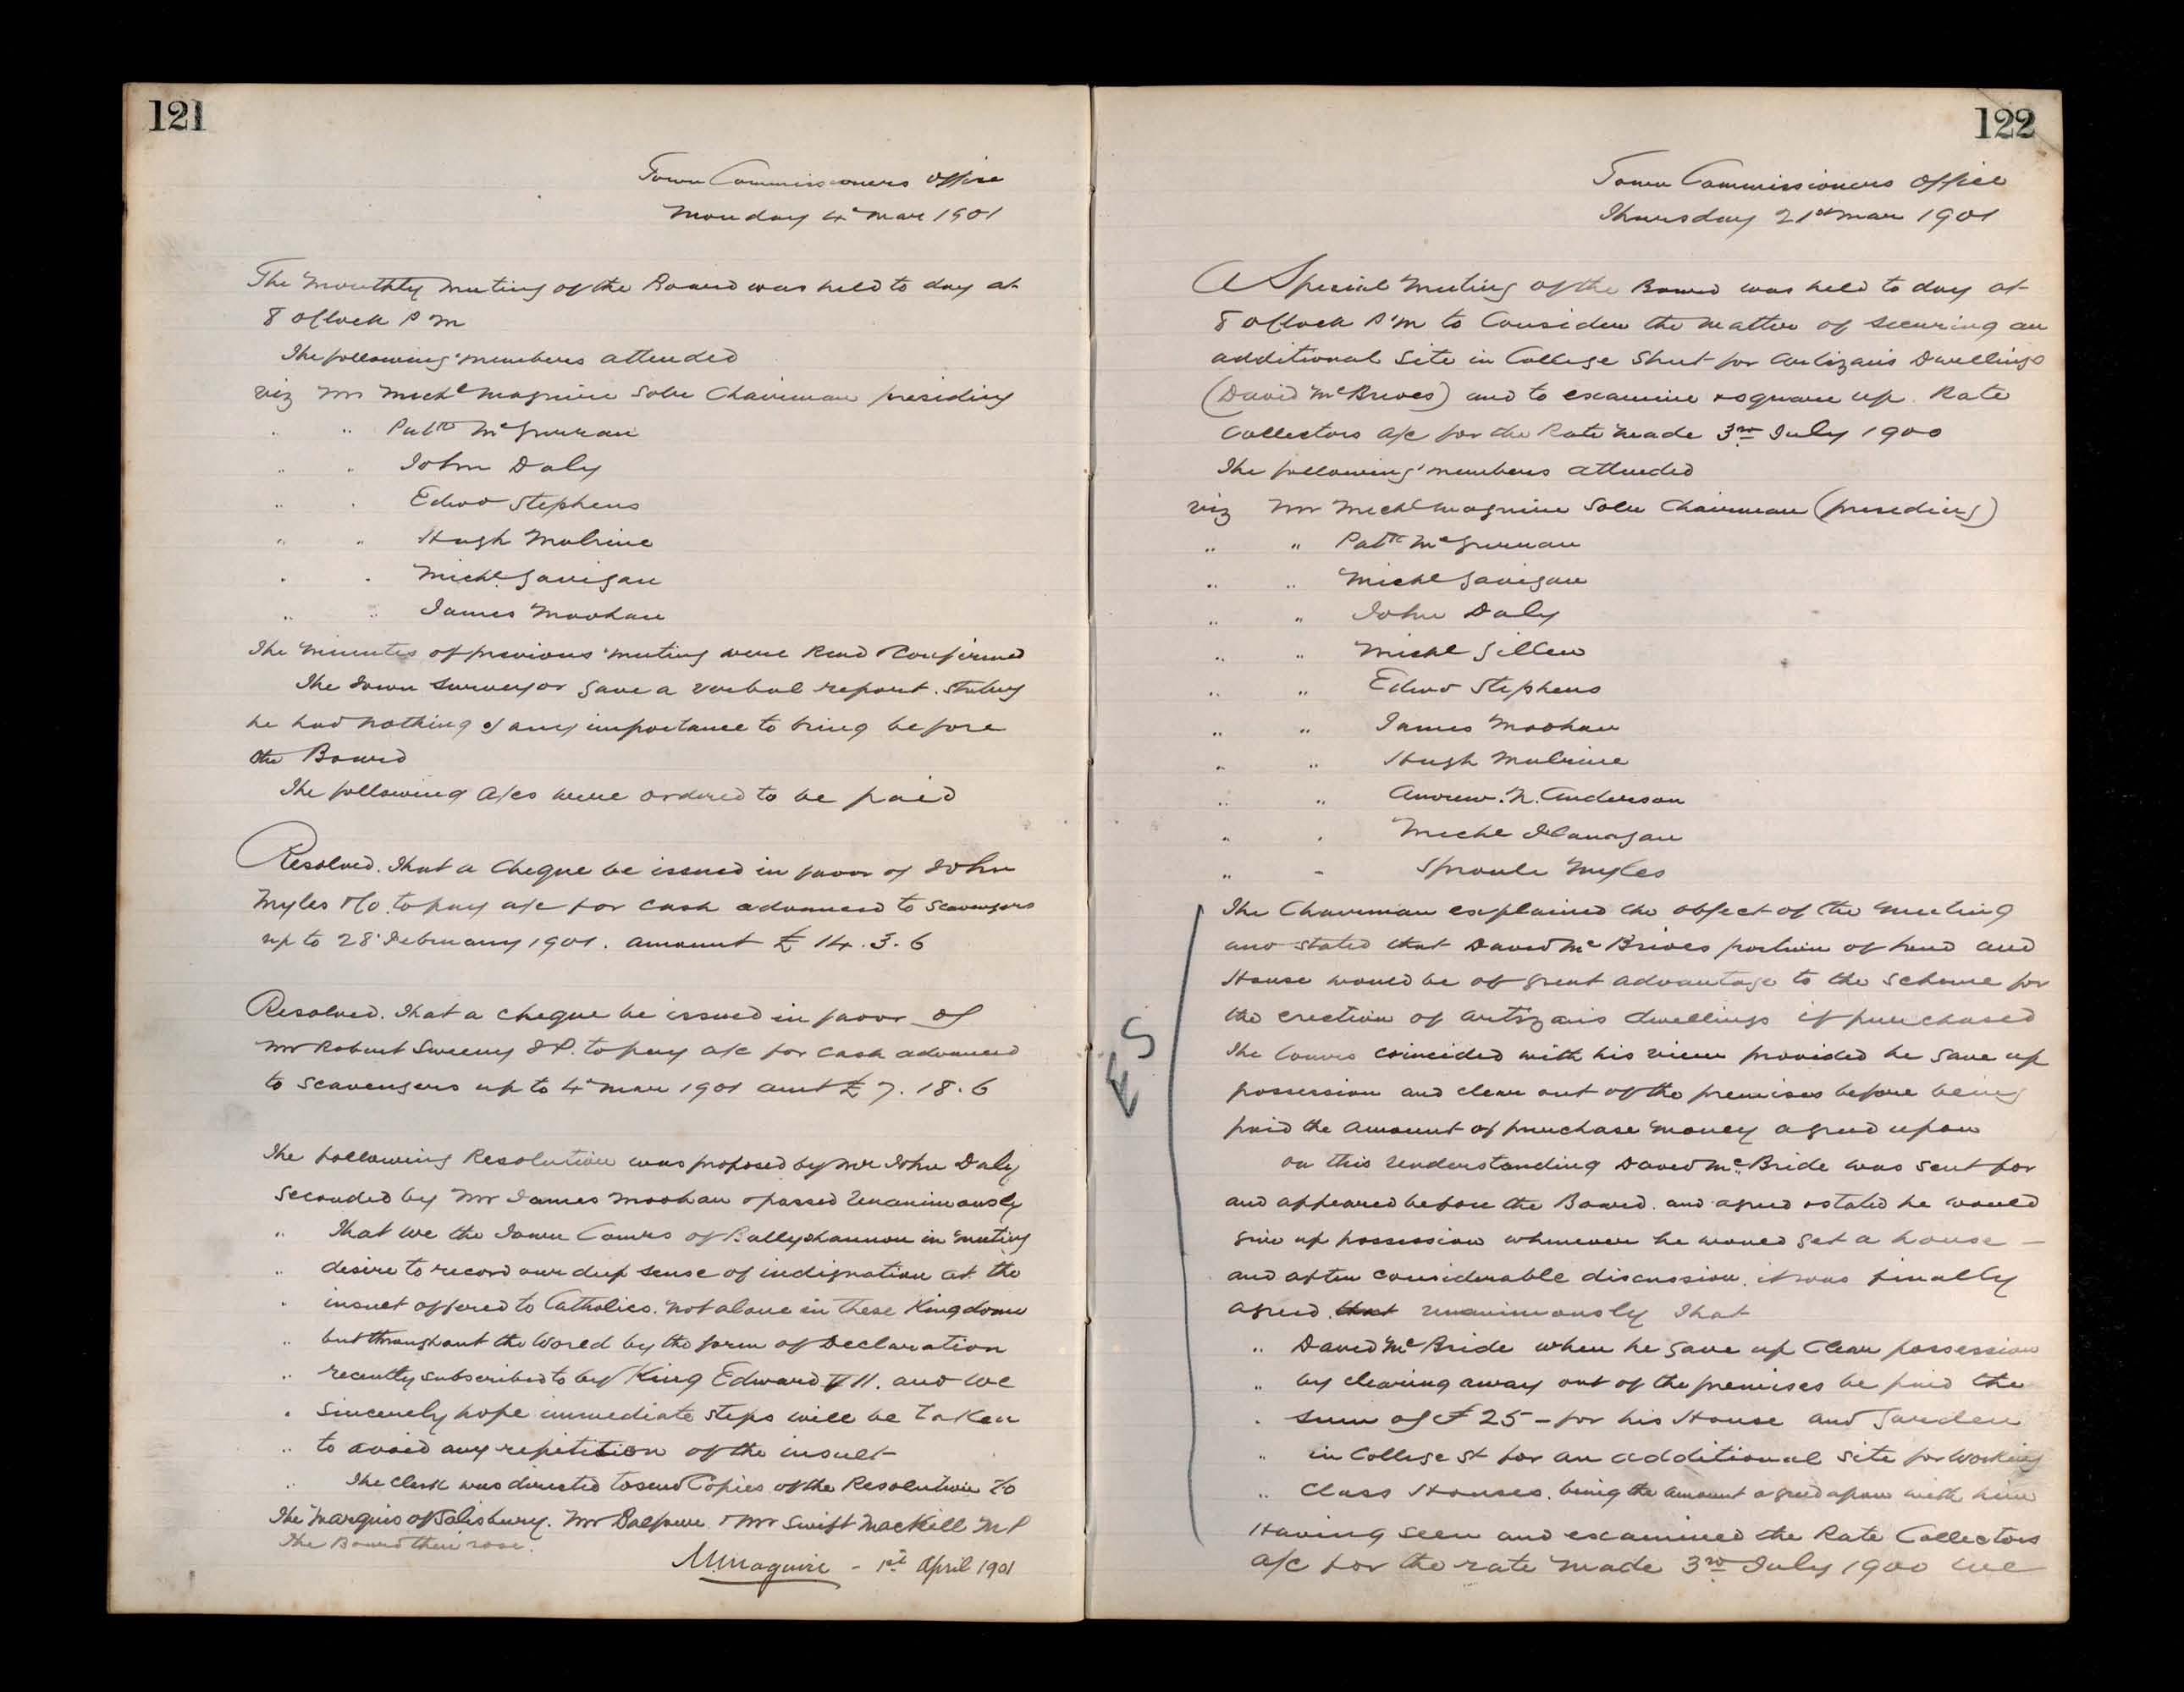 121
Town Commissioners Office
Monday 4th Mar 1901
The Monthly Meeting of the Board was held to day at
8 oClock P M
The following members attended
viz Mr Michl Maguire Solr Chairman presiding
" " Patk McGurran
" " John Daly
" " Edwd Stephens
" " Hugh Mulrine
" " Michl Gavigan
" " James Moohan
The Minutes of previous meeting were Read & Confirmed
The Town Surveyor gave a verbal report. Stating
he had nothing of any importance to bring before
the Board
The following a/cs were ordered to be paid
Resolved. That a Cheque be issued in favor of John
Myles & Co. to pay a/c for cash advanced to Scavengers
up to 28th February 1901. amount £14.3.6
Resolved. That a cheque be issued in favor of
Mr Robert Sweeny J.P. to pay a/c for cash advanced
to Scavengers up to 4th Mar 1901 amt £7.18.6
The following Resolution was proposed by Mr John Daly
Seconded by Mr James Moohan & passed Unanimously
" That we the Town Comrs of Ballyshannon in meeting
" desire to record our deep sense of indignation at the
" insult offered to Catholics. not alone in these Kingdoms
" but throughout the World by the form of Declaration
" recently subscribed to by King Edward VII. and we
" sincerely hope immediate steps will be taken
" to avoid any repetition of the insult
" The Clerk was directed to send Copies of the Resolution to
The Marquis of Salisbury. Mr Balfour & Mr Swift MacNeill M P
The Board then rose.
M Maguire - 1st April 1901
122
Town Commissioners Office
Thursday 21st Mar 1901
A Special Meeting of the Board was held to day at
8 oClock P.M to Consider the matter of securing an
additional Site in College Street for Artizans Dwellings
(David McBrides) and to examine & square up Rate
Collectors a/c for the Rate made 3rd July 1900
The following members attended
viz Mr Michl Maguire Solr Chairman (presiding)
" " Patk McGurran
" " Michl Gavigan
" " John Daly
" " Michl Gillen
" " Edwd Stephens
" " James Moohan
" " Hugh Mulrine
" " Andrew. N. Anderson
" " Michl Flanagan
" " Sproule Myles
The Chairman explained the object of the Meeting
and stated that David McBrides portion of land and
House would be of great advantage to the Scheme for
the erection of artizans dwellings if purchased
The Comrs coincided with his view provided he gave up
possession and clear out of the premises before being
paid the amount of purchase money agreed upon
on this understanding David McBride was sent for
and appeared before the Board. and agreed & stated he would
give up possession whenever he would get a house —
and after considerable discussion. it was finally
agreed that unanimously That
" David McBride when he gave up Clear possession
" by clearing away out of the premises be paid the
" sum of £25 - for his House and Garden
" in College St for an additional site for Working
" Class Houses. being the amount agreed upon with him
Having seen and examined the Rate Collectors
a/c for the rate made 3rd July 1900 we